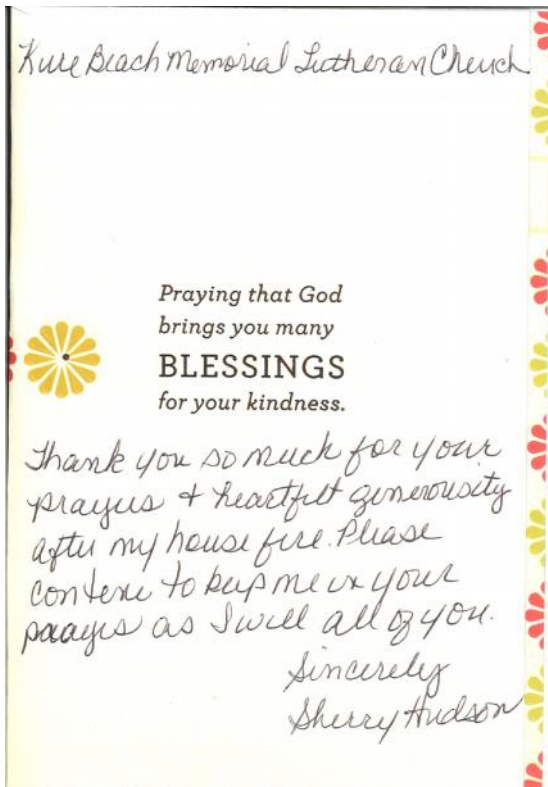 Kure Beach Memorial Lutheran Church
Praying that God
brings you many
BLESSINGS
for your kindness.
Thank you so much for your
prayers + heartfelt generousity
after my house fire. Please
contene to keep me in your
prayers as I will all of you.
Sincerely
Sherry Hudson